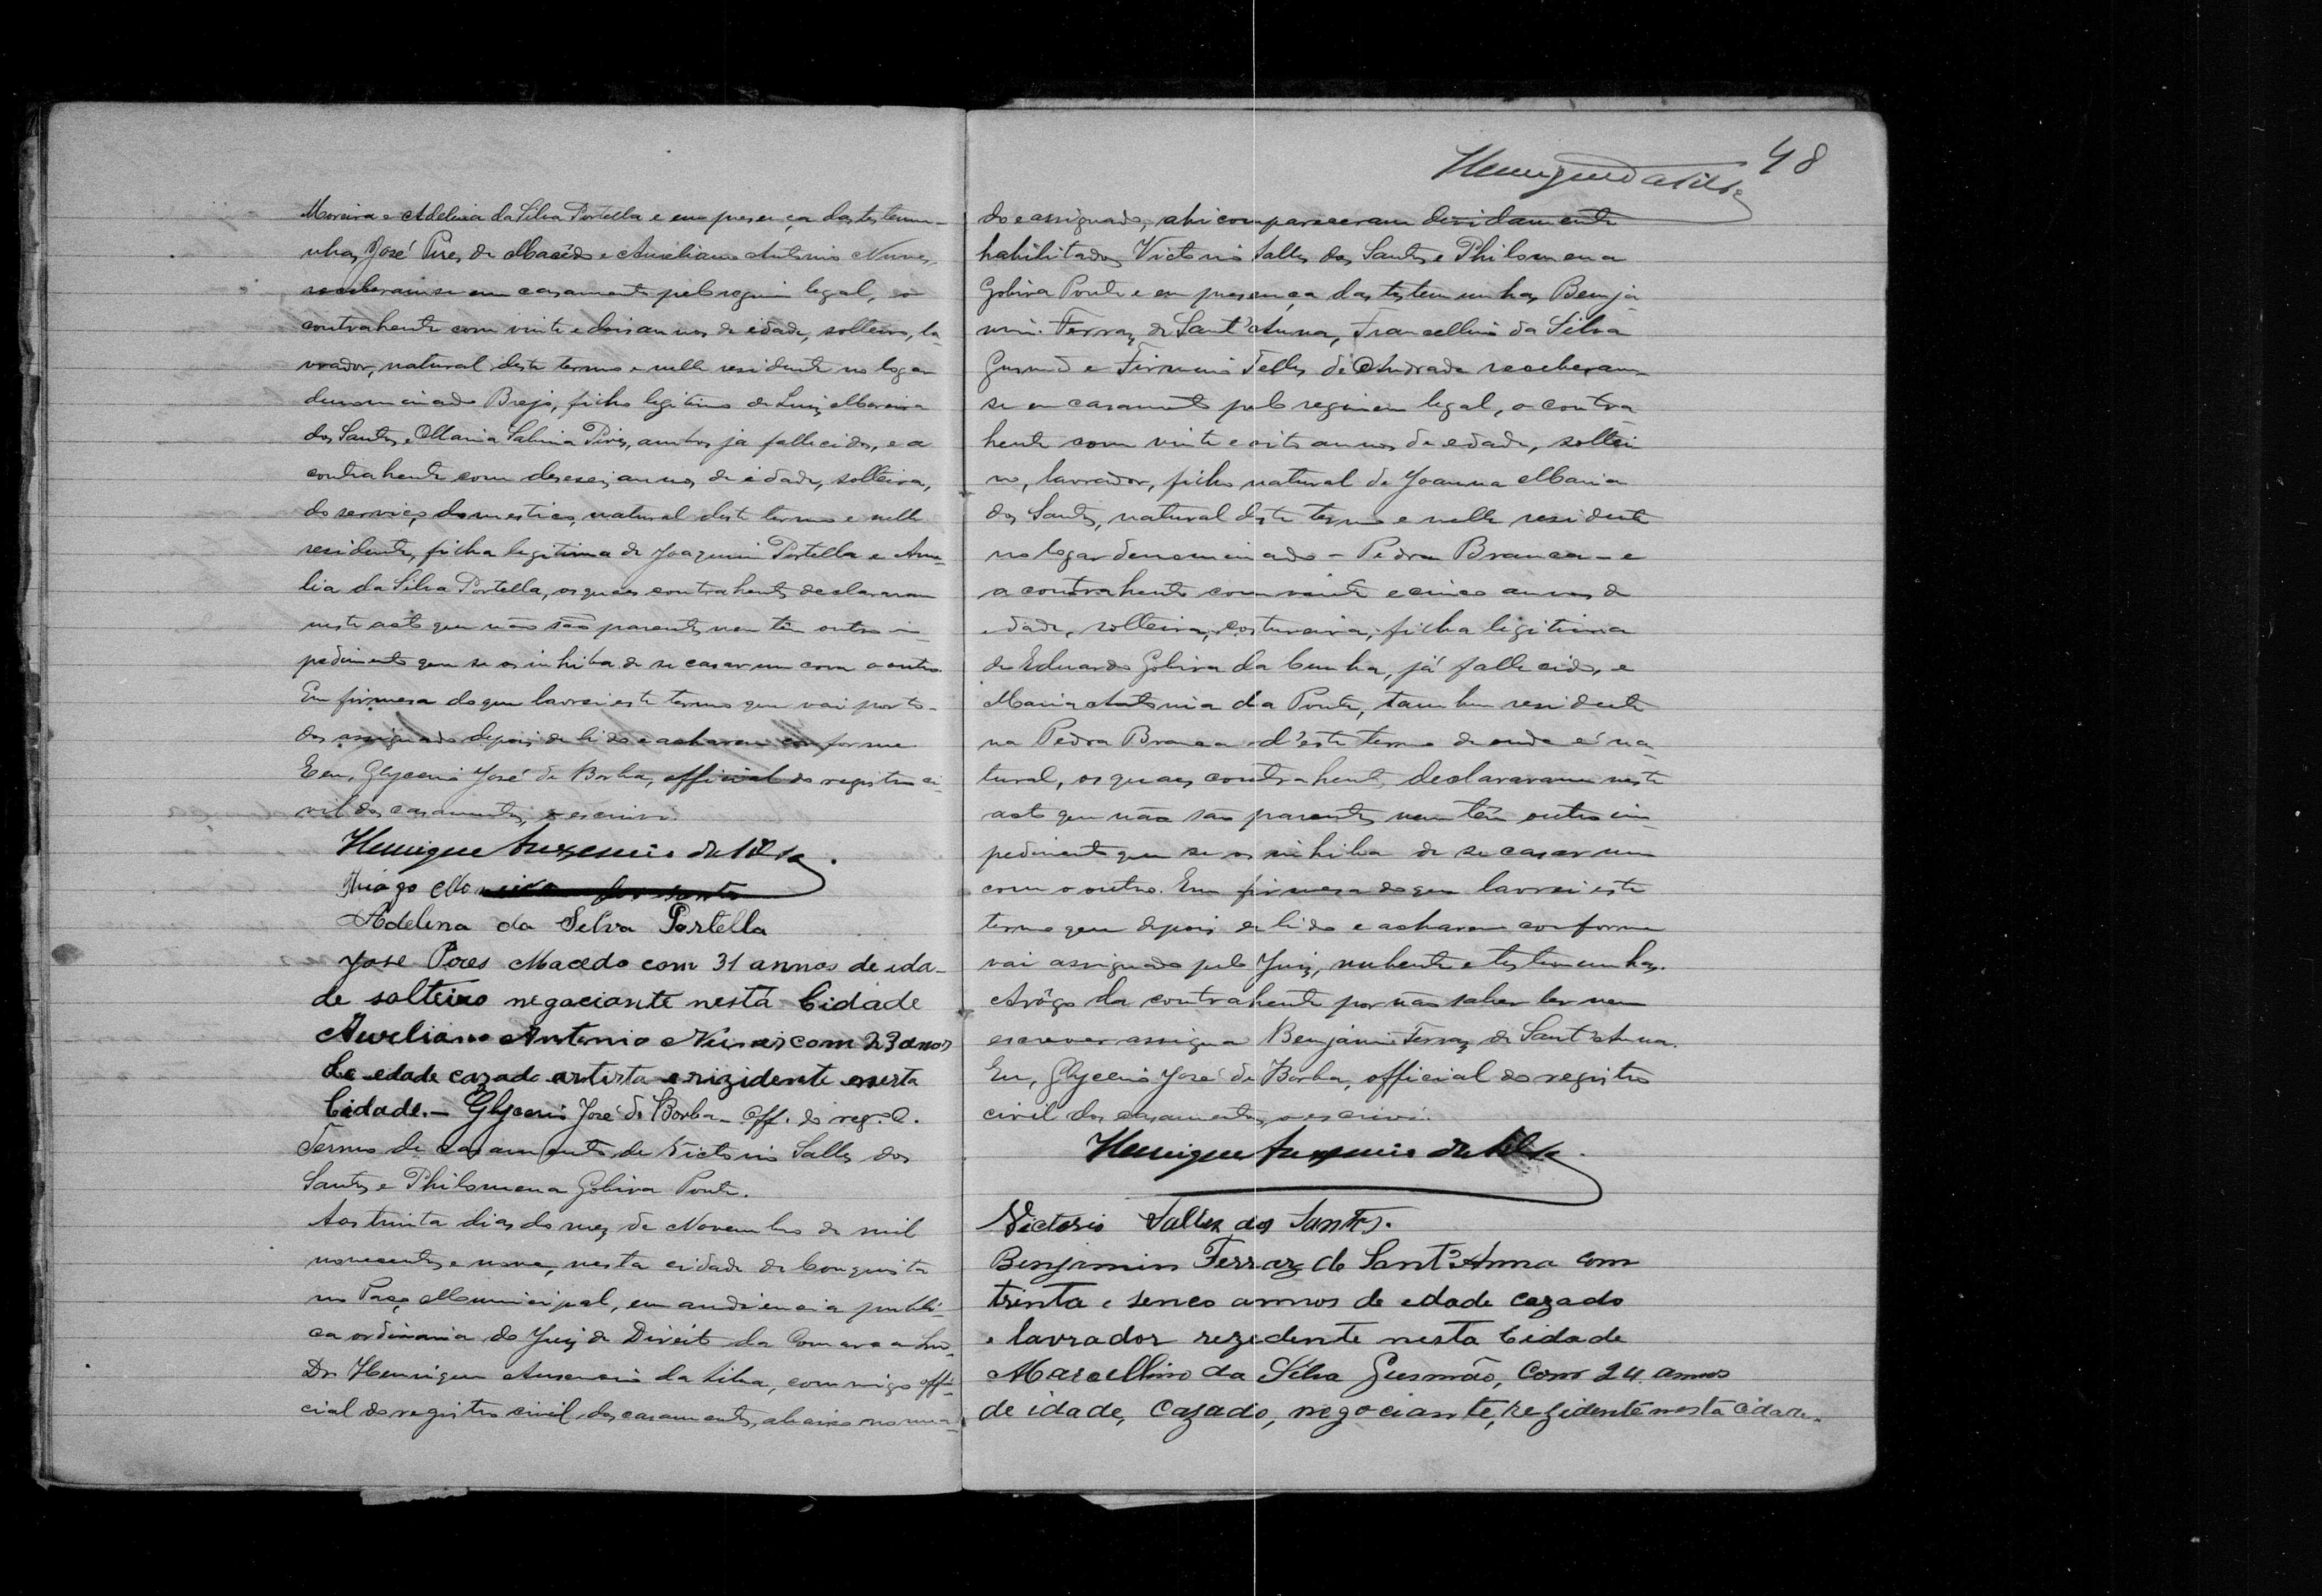 Moreira e Adelina da Silva Portella e em presença das testemu-
nhas José Pires de Macêdo e Aureliano Antonio Nunes,
receberam-se em casamento pelo regimen legal, o
contrahente com vinte e dois annos de idade, solteiro, la-
vrador, natural deste termo e nelle residente no logar
denominado Brejo, filho legitimo de Luiz Moreira
dos Santos e Maria Sabina Pires, ambos já fallecidos, e a
contrahente com deseseis annos de idade, solteira,
do serviço domestico, natural deste termo e nelle
residente, filha legitima de Joaquim Portella e Ame-
lia da Silva Portella, os quaes contrahentes declararam
neste acto que não são parentes nem têm outro im-
pedimento que se os inhiba de se casar um com o outro.
Em firmesa do que lavrei este termo que vai por to-
dos assignado depois de lido e acharem conforme.
E eu, Glycerio José de Borba, official do registro ci-
vil dos casamentos, o escrivi.
Henrique Auxencio da Silva.
Thiago Moreira dos Santos
Adelina da Selva Portella
José Peres Macedo com 31 annos de ida-
de solteiro negociante nestá Cidade
Aureliano Antonio Nunes com 23 anos
de edade cazado artista e rizidente nesta
Cidade. - Glycerio José de Borba - Off. do reg. C.
Termo de casamento de Victorio Salles dos
Santos e Philomena Gobira Ponte.
Aos trinta dias do mez de Novembro de mil
novecentos e nove, nesta cidade de Conquista
no Paço Municipal, em audiencia publi-
ca ordinaria do Juiz de Direito da Comarca
Dr. Henrique Auxencio da Silva, commigo offi-
cial do registro civil dos casamentos, abaixo nomea-
48
Henrique da Silva
do e assignado, ahi compareceram devidamente
habilitados Victorio Salles dos Santos e Philomena
Gobira Ponte e em presença das testemunhas Benja-
mim Ferraz de Sant'Anna, Francellino da Silva
Gusmão e Firmino Telles de Andrade receberam-
se em casamento pelo regimen legal, o contra-
hente com vinte e oito annos de edade, soltei-
ro, lavrador, filho natural de Joanna Maria
dos Santos, natural deste termo e nelle residente
no logar denominado - Pedra Branca - e
a contrahente com vinte e cinco annos de
edade, solteira, costureira, filha legitima
de Eduardo Gobira da Cunha, já fallecido, e
Maria Antonia da Ponte, tambem residente
na Pedra Branca d'este termo de onde é na-
tural, os quaes contrahentes declararam neste
acto que não são parentes nem têm outro im-
pedimento que se os inhiba de se casar um
com o outro. Em firmesa do que lavrei este
termo que depois de lido e acharem conforme
vai assignado pelo Juiz, nubente e testemunhas.
Arôgo da contrahente por não saber ler nem
escrever assigna Benjamim Ferraz de Sant'Anna.
Eu, Glycerio José de Borba, official do registro
civil dos casamentos, o escrivi.
Henrique Auxencio da Silva.
Victorio Salles dos Santos.
Benjamin Ferraz de Sant'Anna com
trinta e senco annos de edade cazado
e lavrador rezedente nesta Cidade
Marcellino da Silva Gusmão, Com 24 annos
de idade, Cazado, negociante, rezidente nesta Cidade.